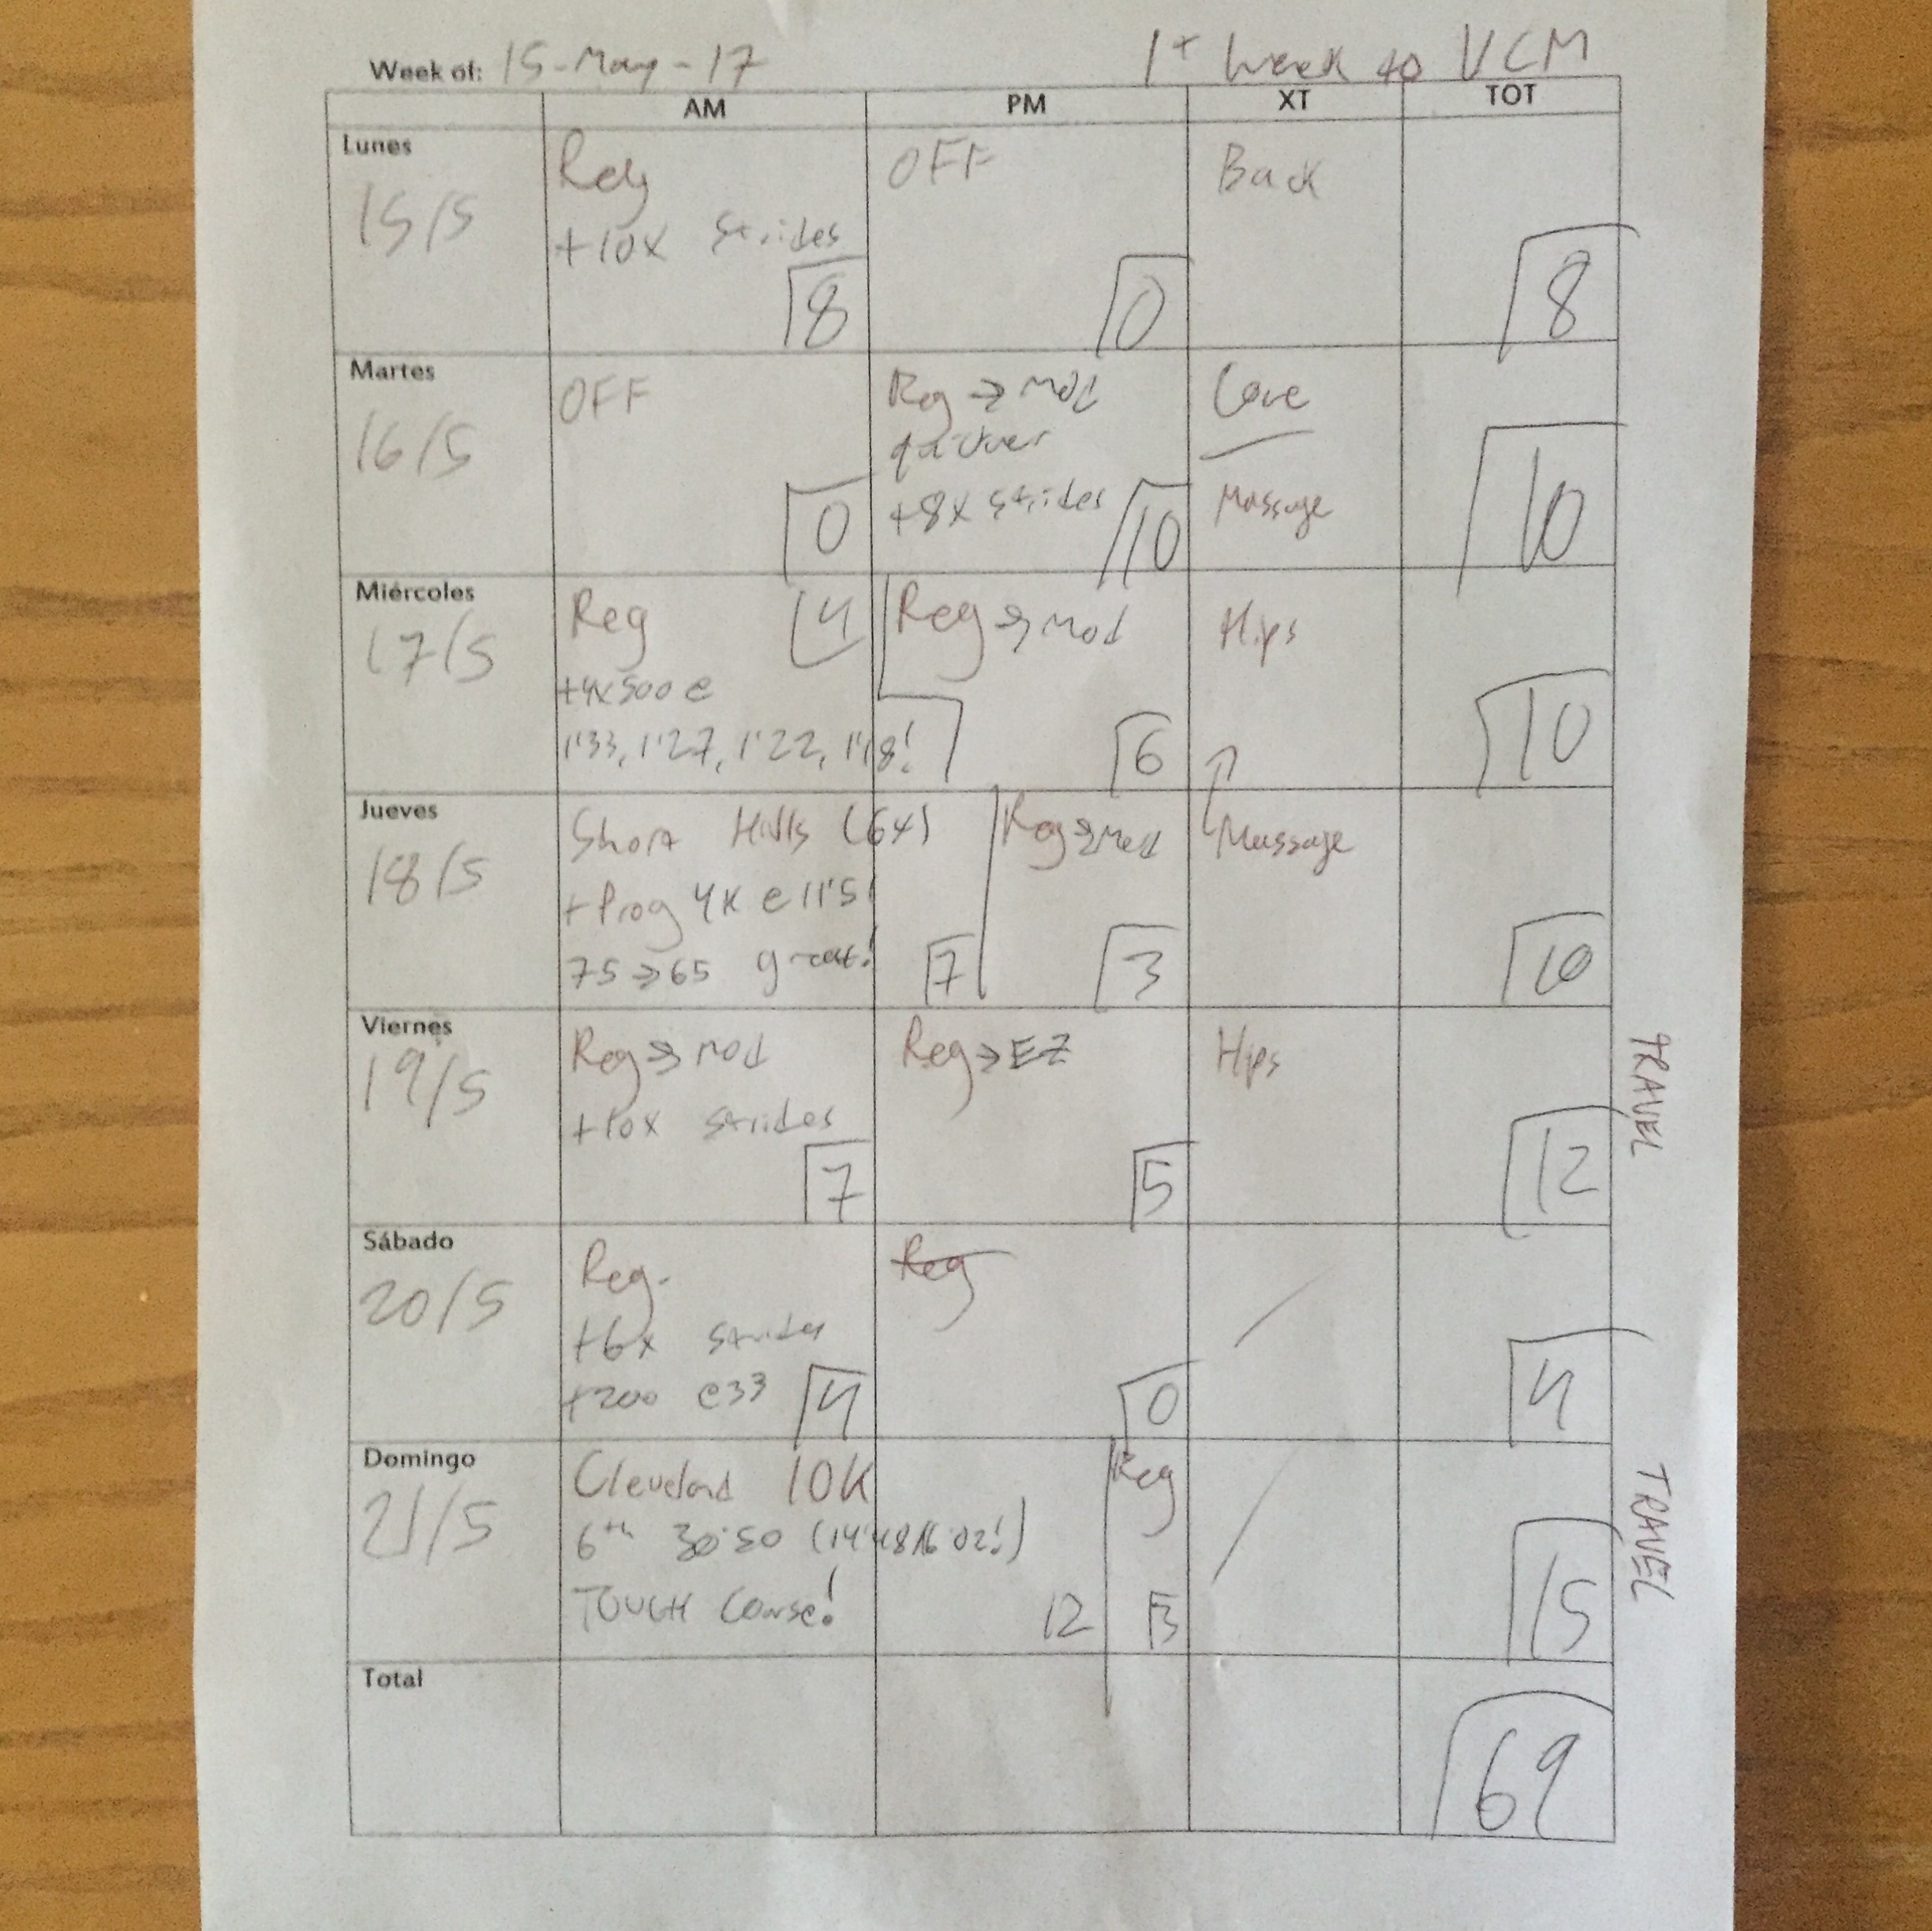 Week of: 15-May-17
1+ week to VCM
AM PM XT TOT
Lunes
15/5
Reg
+10x strides
8
OFF
0
Back
8
Martes
16/5
OFF
0
Reg → mod
+8x strides
10
Core
Massage
10
Miércoles
17/5
Reg
4
+4x500 e
1'33, 1'27, 1'22, 1'18!
Reg → Mod
6
Hips
10
Jueves
18/5
Short Hills (6x)
+Prog 4K e 11'51
75→65 great!
7
Reg → Mod
3
Massage
10
Viernes
19/5
Reg → mod
+10x strides
7
Reg → EZ
5
Hips
12
TRAVEL
Sábado
20/5
Reg.
+6x strides
+200 e33
4
Reg
0
4
Domingo
21/5
Cleveland 10K
6th 30:50 (14'48/16'02!)
TOUGH course!
12
Reg
3
15
TRAVEL
Total
69